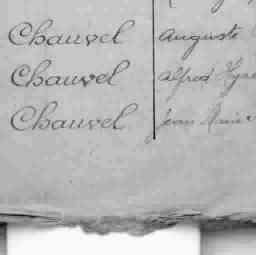 Chauvel Auguste
Chauvel Alfred
Chauvel Jean Marie